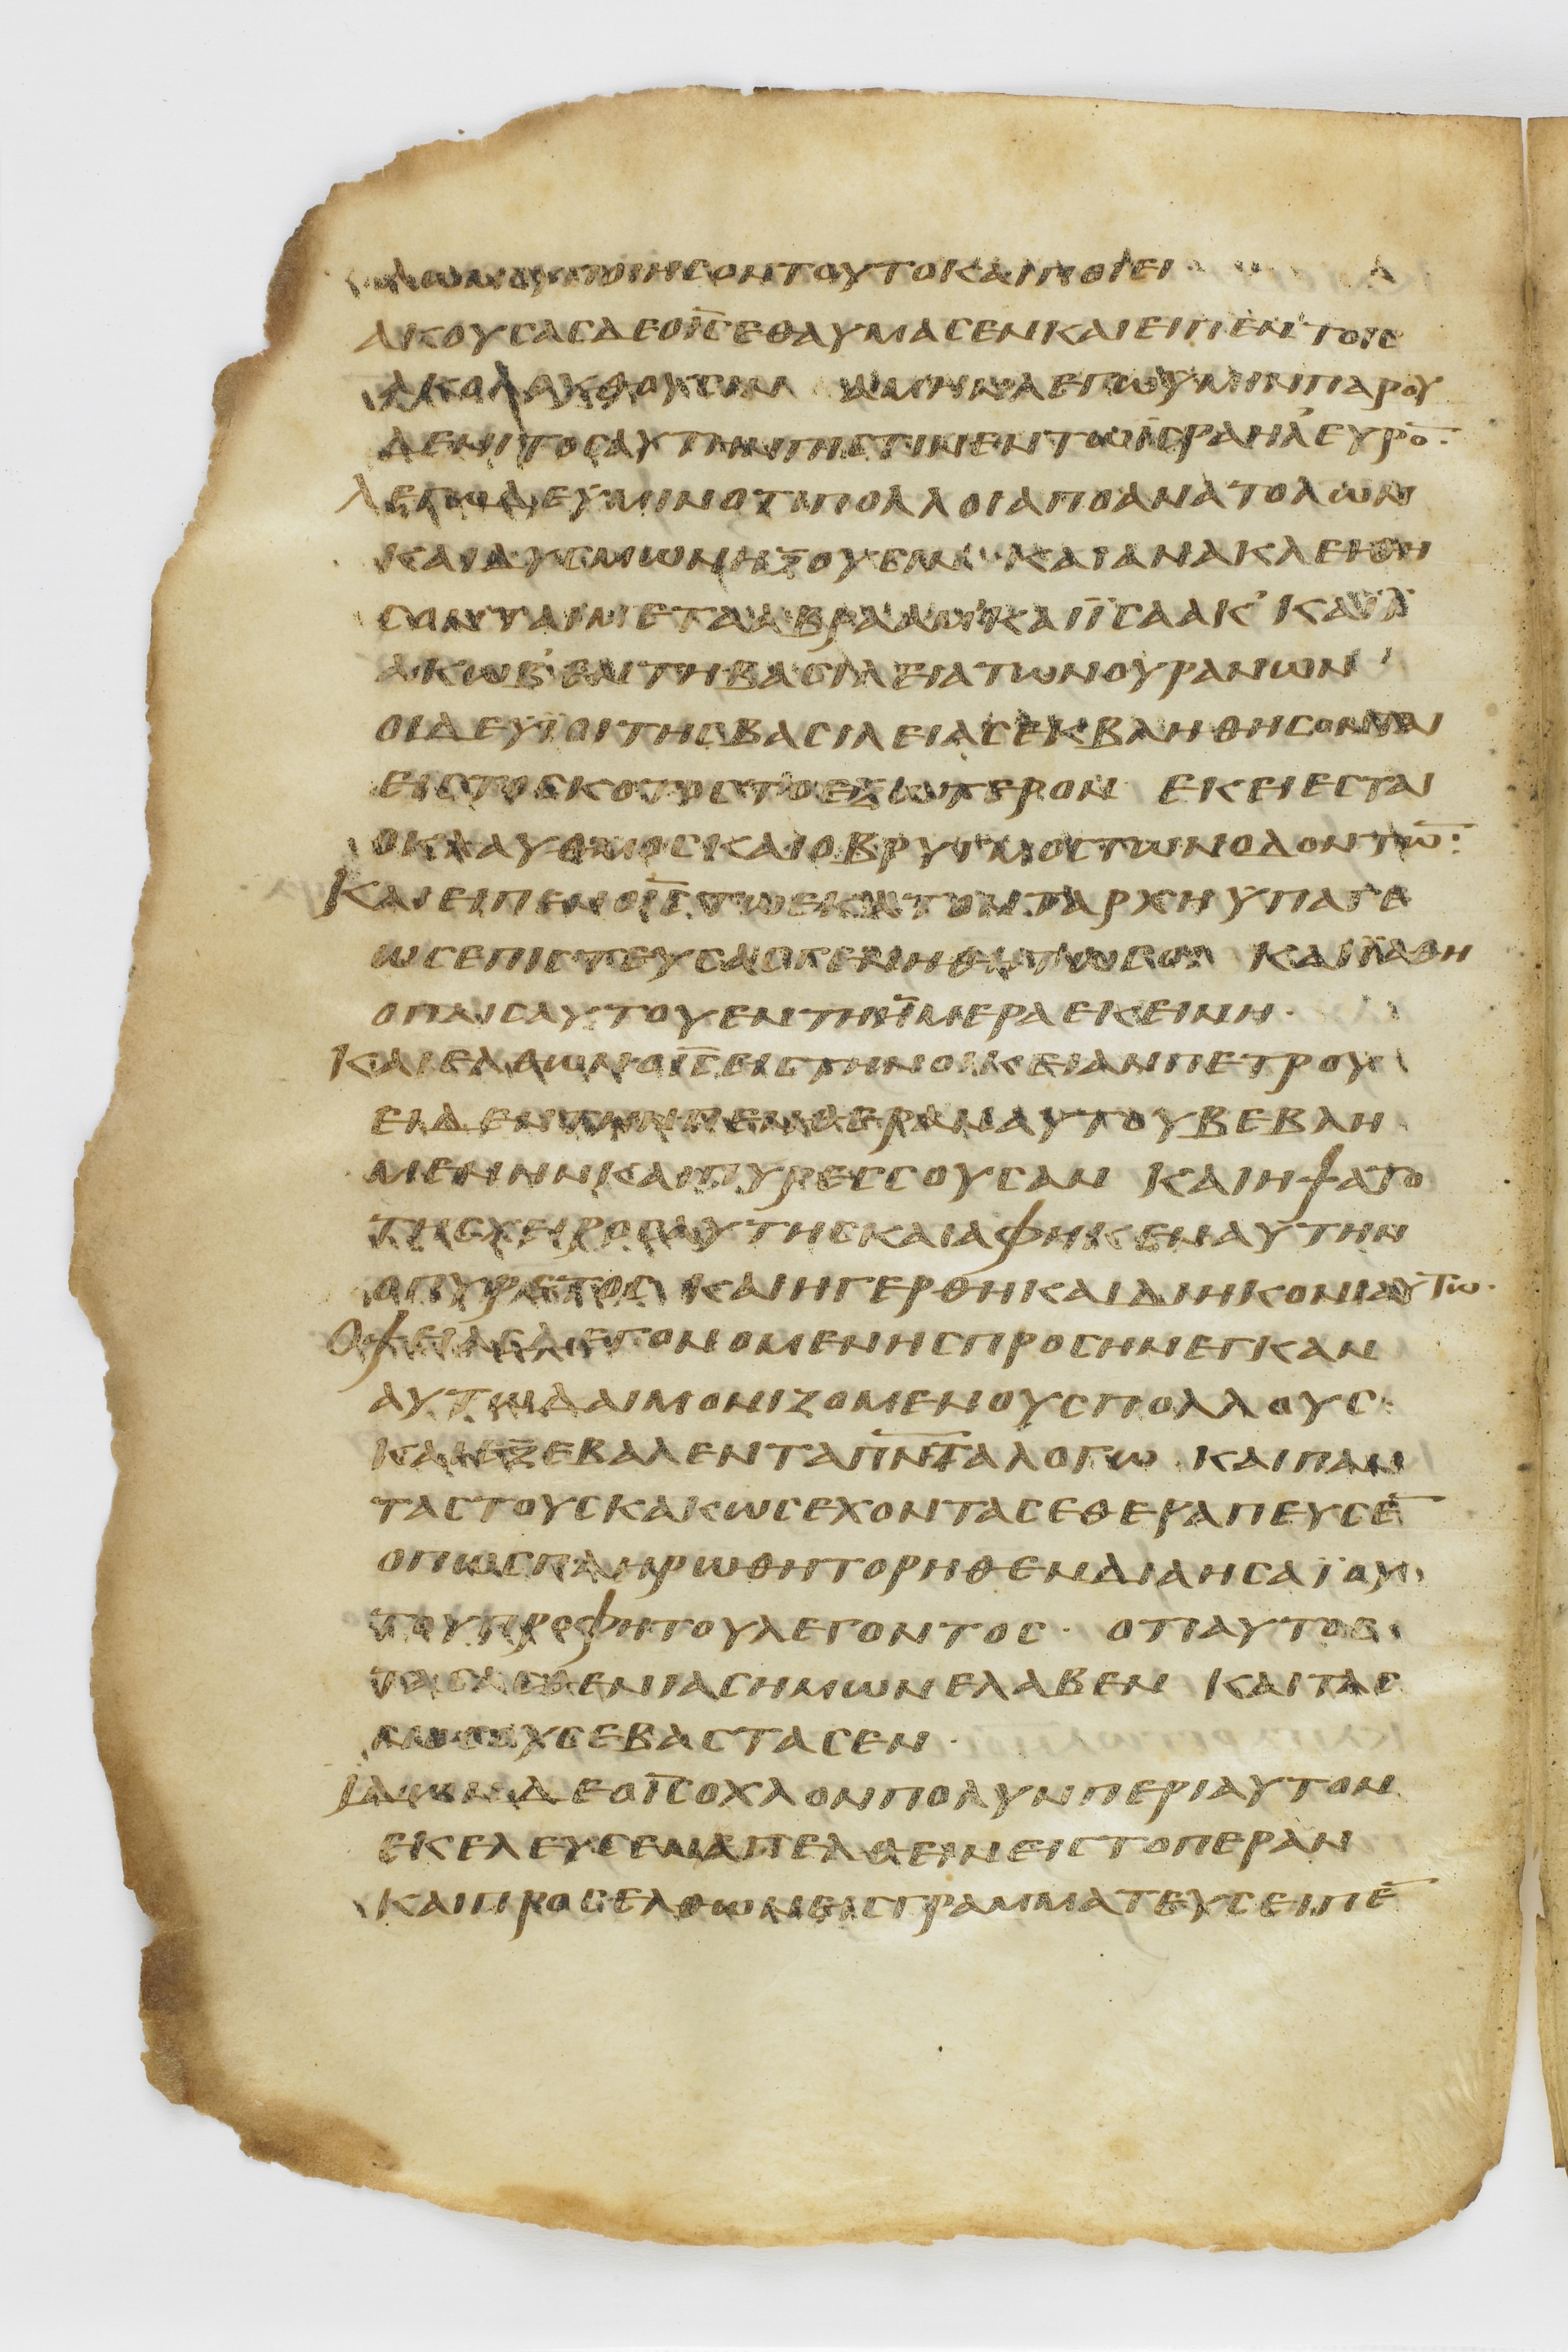 δουλω μου ποιησον τουτο και ποιει
ακουσας δε ο ις εθαυμασεν και ειπεν τοις
ακολουθουσιν αμην λεγω υμιν παρ ου
δενι τοσαυτην πιστιν εν τω ισραηλ ευρο
λεγω δε υμιν οτι πολλοι απο ανατολων
και δυσμων ηξουσιν και ανακλειθη
σονται μετα αβρααμ και ισαακ και ι
ακωβ εν τη βασιλεια των ουρανων
οι δε υιοι της βασιλειας εκβληθησονται
εις το σκοτος το εξωτερον εκει εσται
ο κλαυθμος και ο βρυγμος των οδοντω
και ειπεν ο ις τω εκατονταρχη υπαγε
ως επιστευσας γενηθητω σοι και ιαθη
ο παις αυτου εν τη ημερα εκεινη
και ελθων ο ις εις την οικειαν πετρου
ειδεν την πενθεραν αυτου βεβλη
μενην και πυρεσσουσαν και ηψατο
της χειρος αυτης και αφηκεν αυτην
ο πυρετος και ηγερθη και διηκονι αυτω
οψειας δε γονομενης προσηνεγκαν
αυτω δαιμονιζομενους πολλους
και εξεβαλεν τα πντα λογω και παν
τας τους κακως εχοντας εθεραπευσε
οπως πληρωθη το ρηθεν δια ησαιου
του προφητου λεγοντος οτι αυτος
τας ασθενιας ημων ελαβεν και τας
νοσους εβαστασεν
ιδων δε ο ις οχλον πολυν περι αυτον
εκελευσεν απελθειν εις το περαν
και προσελθων εις γραμματευς ειπε